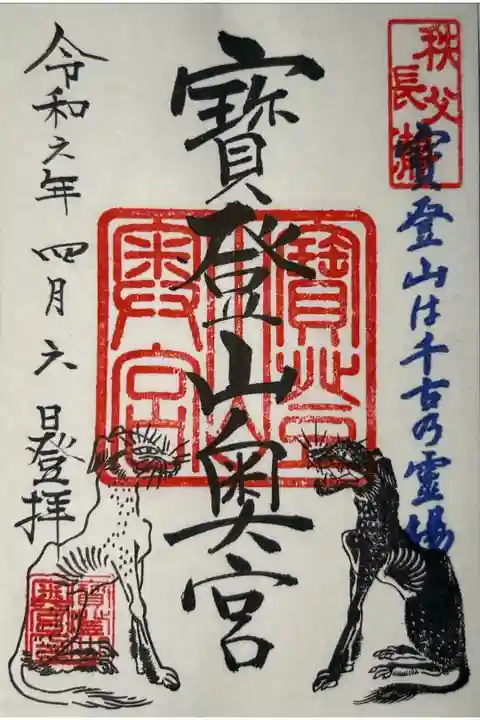 秩父
長瀞
寶登山は千古の霊場
寶登山奥宮
寶登山
奥宮
令和六年四月六日登拝